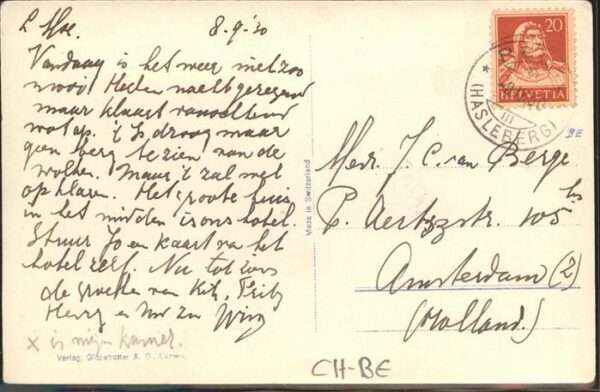 L Moe. 8-9-'30
Vandaag is het weer niet zoo
mooi. Heden nacht geregend
maar klaart vanochtend
wat op. 't Is droog maar
geen berg te zien van de
wolken. Maar 't zal wel
opklaren. Het groote huis
in het midden is ons hotel.
Stuur Jo en kaart van het
hotel zelf. Nu tot ziens
de groeten van Kitz, Fritz
Herry en
x is mijn kamer.
Verlag. Globetrotter A. G., Luzern
Made in Switzerland
20
HELVETIA
(HASLEBERG)
III
BE
Mevr. J. C. van Berge
P. Aertszstr. 105 hs
Amsterdam (Z)
(Holland.)
CH-BE